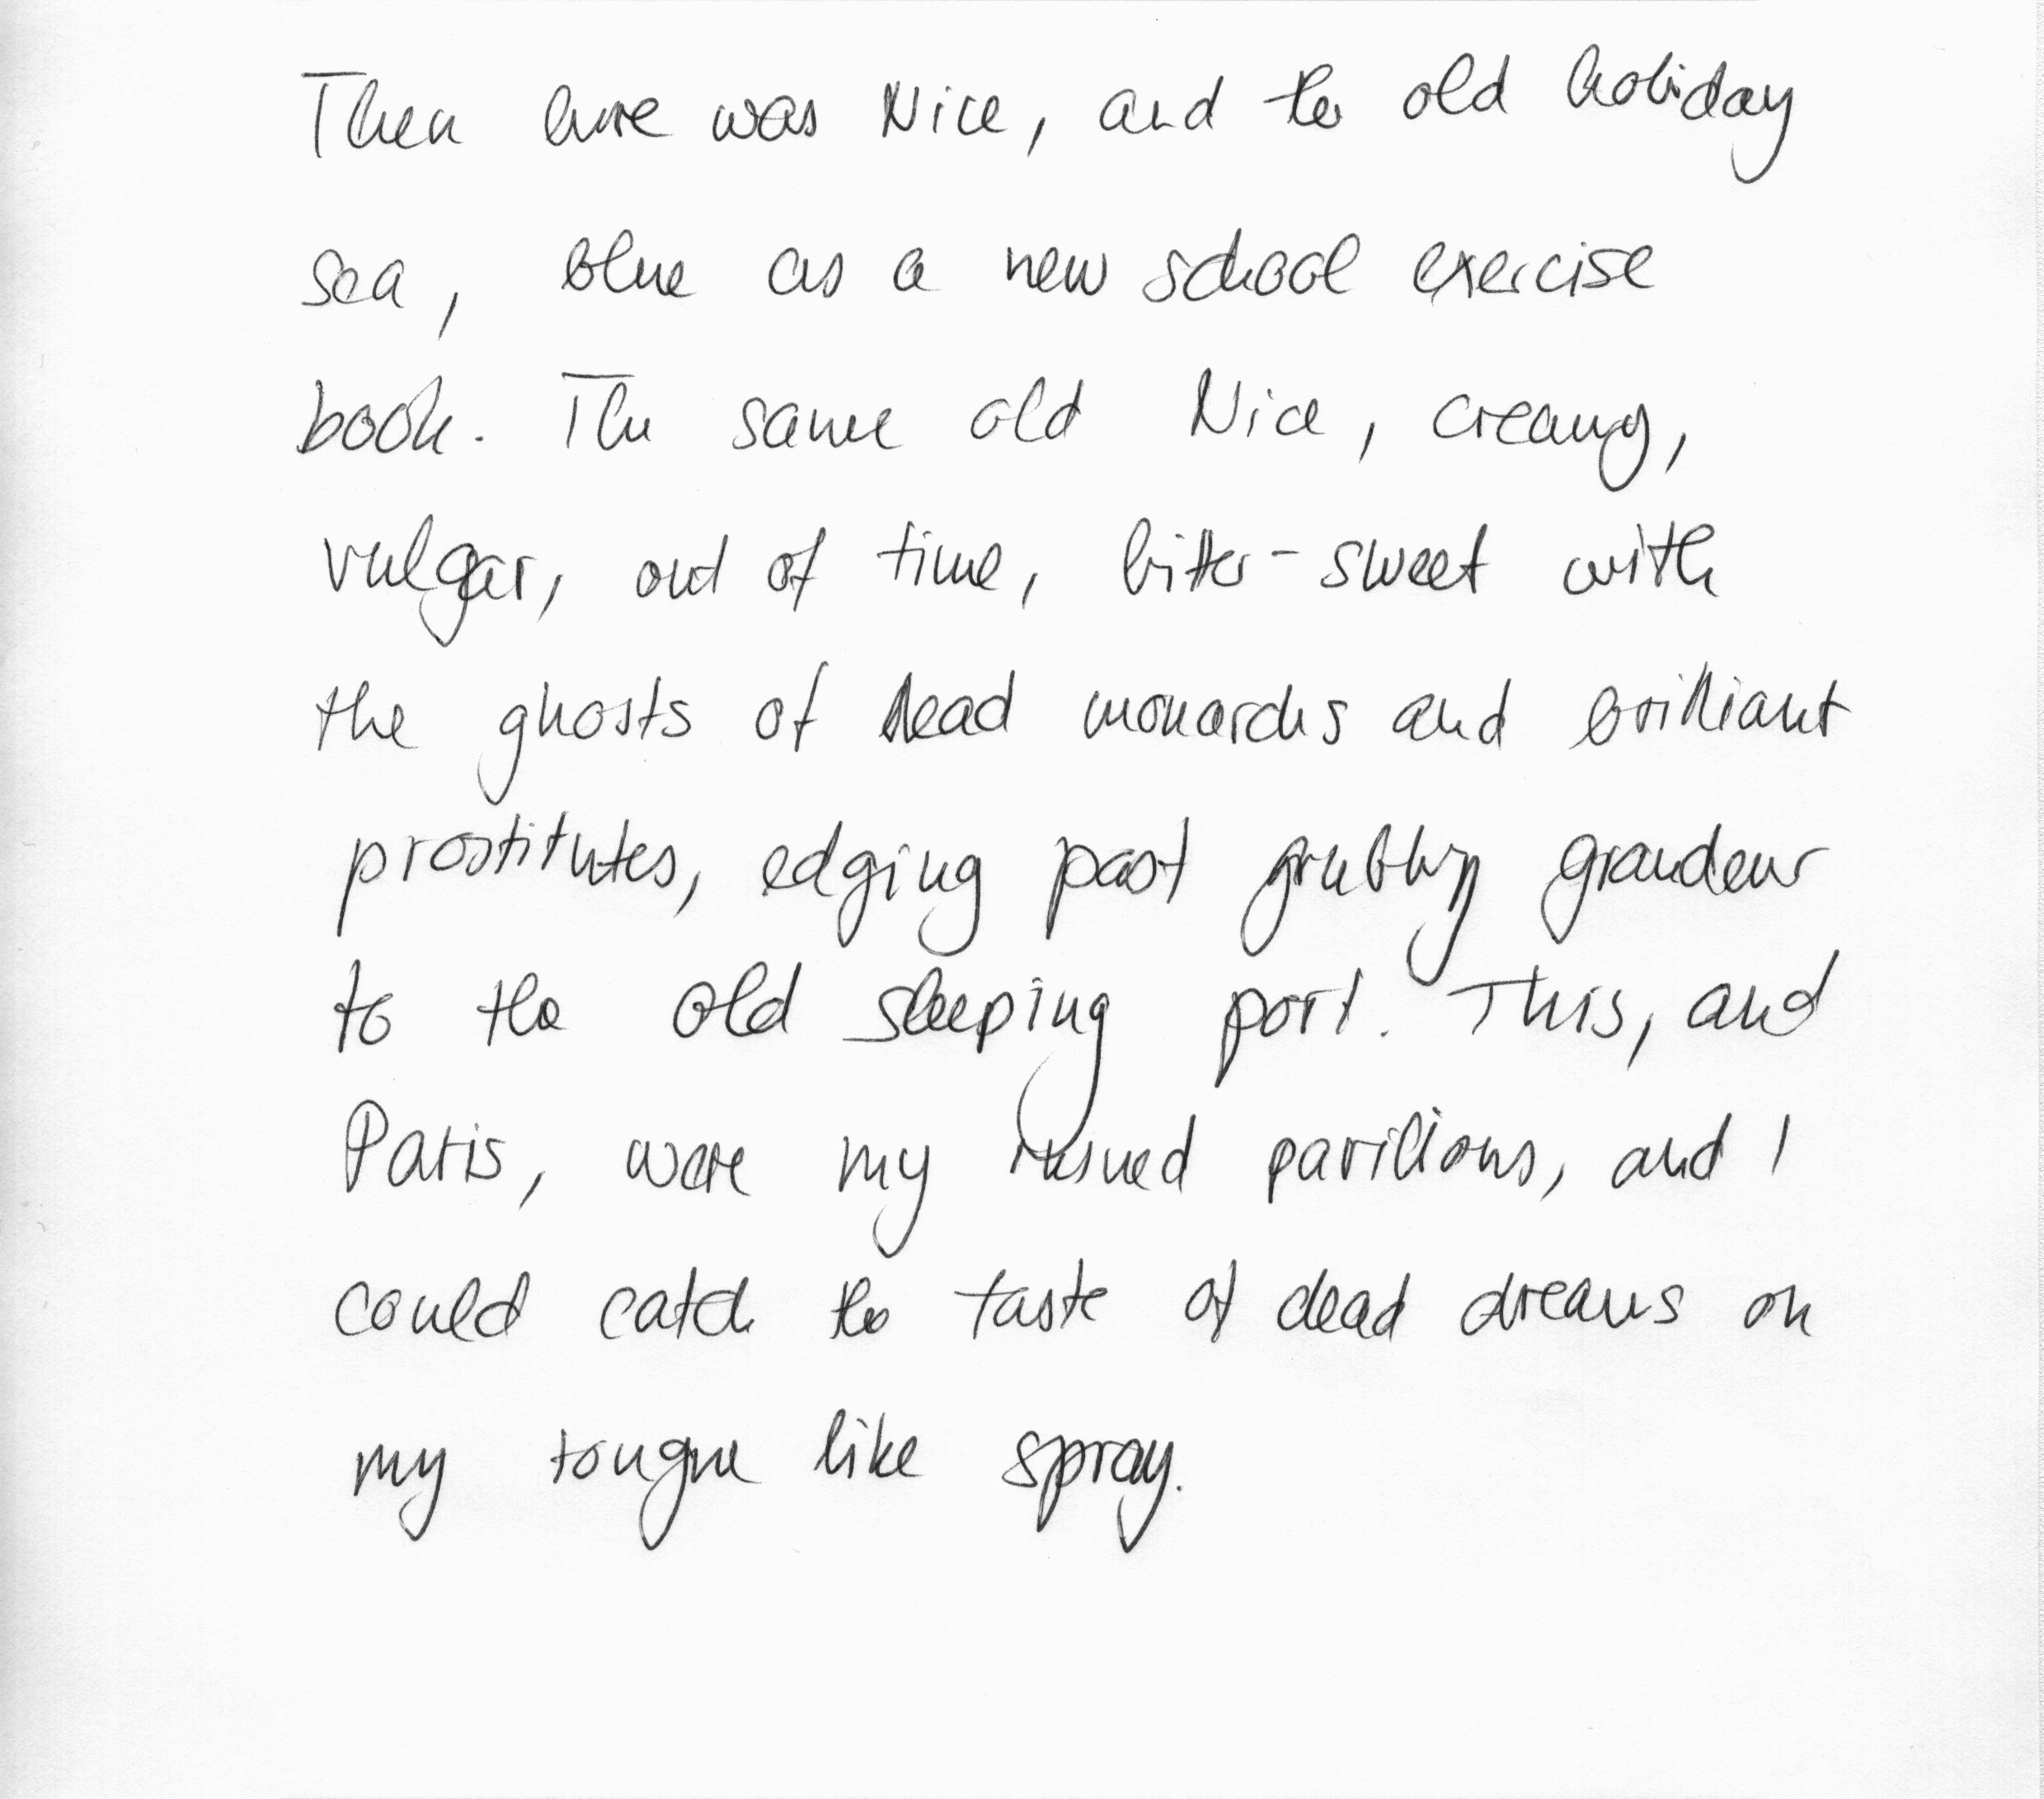 Then here was Nice, and the old holiday
sea, blue as a new school exercise
book. The same old Nice, creamy,
vulgar, out of time, bitter-sweet with
the ghosts of dead monarchs and brilliant
prostitutes, edging past grubby grandeur
to the old sleeping port. This, and
Paris, were my pavilions, and I
could catch the taste of dead dreams on
my tongue like spray.